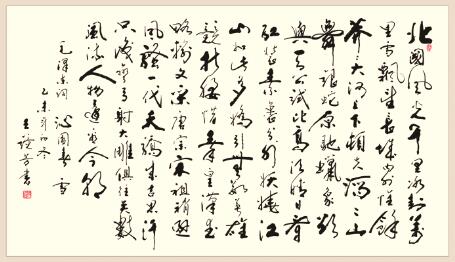 北國風光千里冰封萬
里雪飄望長城內外惟餘
莽莽大河上下頓失滔滔山
舞銀蛇原馳蠟象欲
與天公試比高須晴日看
紅裝素裹分外妖嬈江
山如此多嬌引無數英雄
競折腰惜秦皇漢武
略輸文采唐宗宋祖稍遜
風騷一代天驕成吉思汗
只識彎弓射大雕俱往矣數
風流人物還看今朝
毛澤東詞 沁園春 雪
乙未年冬
書